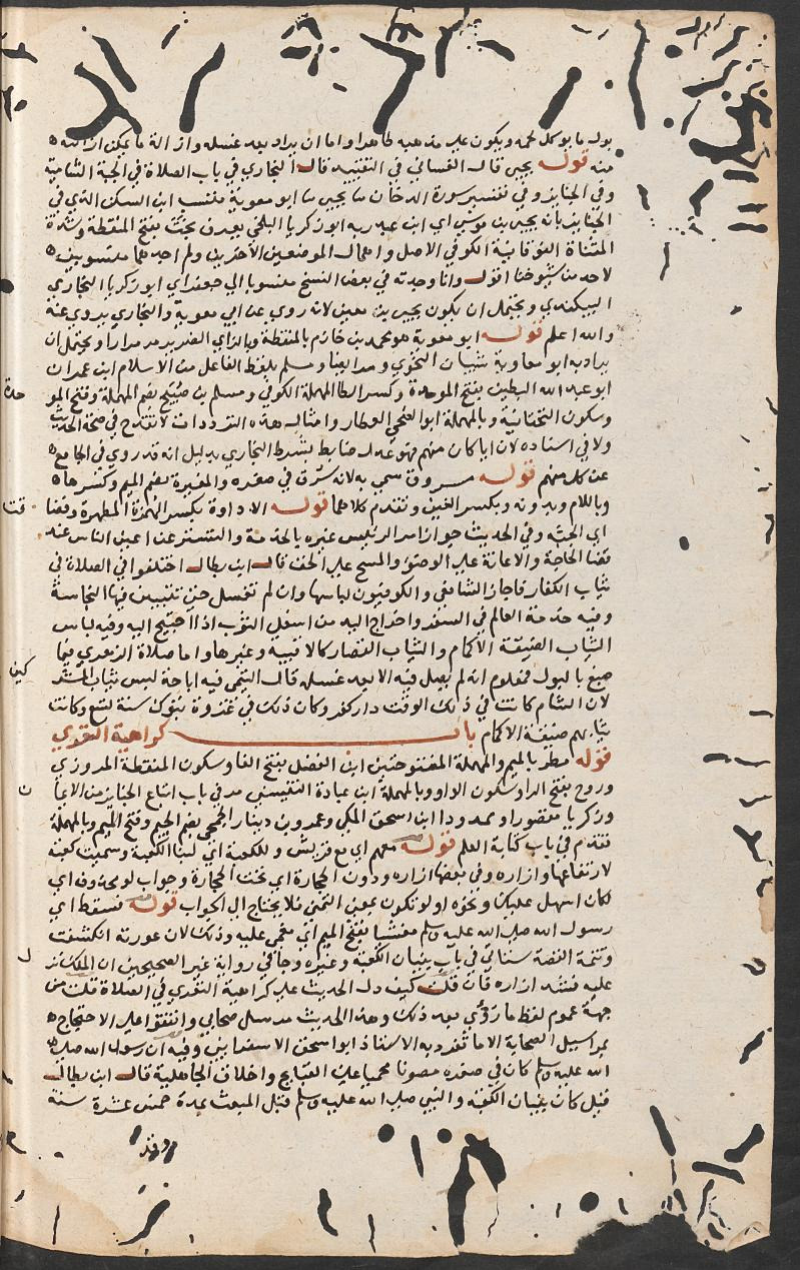 بول ما يوكل لحمه ويكون على مذهبه طاهرا واما ان يراد بعد غسله وازالة ما يمكن ازالته
منه قوله يحيى قال الغساني في التقييد قال البخاري في باب الصلاة في الجبة الشامية
وفي الجنايز وفي تفسير سورة الدخان ثنا يحيى ثنا ابو معوية فنسب ابن السكن الذي في
الجنايز بأن يحيى بن موسى اي ابن عبد ربه ابو زكريا البلخي يعرف بخت بفتح المنقطة وشدة
المثناة الفوقانية الكوفي الاصل واهمل الموضعين الآخرين ولم اجدهما منسوبين
لاحد من شيوخنا اقول وانا وجدته في بعض النسخ منسوبا الى جعفر اي ابو زكريا البخاري
البيكندي ويحتمل ان يكون يحيى بن معين لانه روي عن ابي معوية والبخاري يروي عنه
والله اعلم قوله ابو معوية هو محمد بن خازم بالمنقطة وبالزاي الضرير مر مرارا ويحتمل ان
يراد به ابو معاوية شيبان النحوي ومر ايضا ومسلم بلفظ الفاعل من الاسلام ابن عمران
ابو عبد الله البطين بفتح الموحدة وكسر الطا المهملة الكوفي ومسلم بن صبيح بضم المهملة وفتح المو
حدة
وسكون التحتانية وبالمهملة ابو الضحى العطار وامثال هذه الترددات لا تقدح في صحة الحديث
ولا في اسناده لان ايا كان منهم فهو عدل ضابط بشرط البخاري بدليل انه قد روي في الجامع
عن كل منهم قوله مسروق سمي به لانه سرق في صغره والمغيرة بضم الميم وكسرها
وباللام وبدونه وبكسر الغين وتقدم كلاهما قوله الاداوة بكسر الهمزة المطهرة وقضا
اي الجبة وفي الحديث جواز امر الرئيس غيره بالخدمة والتستر عن اعين الناس عند
قضا الحاجة والاعانة على الوضوء والمسح على الخف قال ابن بطال اختلفوا في الصلاة في
ثياب الكفار فاجاز الشافعي والكوفيون لباسها وان لم تغسل حتى تتبين فيها النجاسة
وفيه خدمة العالم في السفر واخراج اليد من اسفل الثوب اذا احتيج اليه وفيه لباس
الثياب الضيقة الاكمام والثياب القصار كالاقبية وغيرها واما صلاة الزهري فيما
صبغ بالبول فمعلوم انه لم يصل فيه الا بعد غسله قال التيمي فيه اباحة لبس ثياب المشر
كين
لان الشام كانت في ذلك الوقت دار كفر وكان ذلك في غزوة تبوك سنة تسع وكانت
ثيابهم ضيقة الاكمام باب كراهية التعري
قوله مطر بالميم والمهملة المفتوحتين ابن الفضل بفتح الفا وسكون المنقطة المروزي
وروح بفتح الرا وسكون الواو وبالمهملة ابن عبادة القيسي مر في باب اتباع الجنايز من الايما
ن
وزكريا مقصورا وممدودا ابن اسحق المكي وعمرو بن دينار الجمحي بضم الجيم وفتح الميم وبالمهملة
تقدم في باب كتابة العلم قوله معهم اي مع قريش وللكعبة اي لبنا الكعبة وسميت كعبة
لارتفاعها وازاره وفي بعضها ازاره ودون الحجارة اي تحت الحجارة وجواب لو محذوف اي
لكان اسهل عليك ونحوه او لو تكون بمعنى التمني فلا يحتاج الى الجواب قوله فسقط اي
رسول الله صلى الله عليه وسلم مغشيا بفتح الميم اي مغمى عليه وذلك لان عورته انكشفت
وتتمة القصة ستاتي في باب بنيان الكعبة وغيره وجا في رواية غير الصحيحين ان الملك نز
ل
عليه فشد ازاره فان قلت كيف دل الحديث على كراهية التعري في الصلاة قلت من
جهة عموم لفظ ما رؤي بعد ذلك وهذا الحديث مرسل صحابي واتفقوا على الاحتجاج
بمراسيل الصحابة الا ما تفرد به الاستاذ ابو اسحق الاسفرايني وفيه ان رسول الله صلى
الله عليه وسلم كان في صغره مصونا محميا عن القبايح واخلاق الجاهلية قال ابن بطال
قيل كان بنيان الكعبة والنبي صلى الله عليه وسلم قبل المبعث بمدة خمس عشرة سنة
وقد